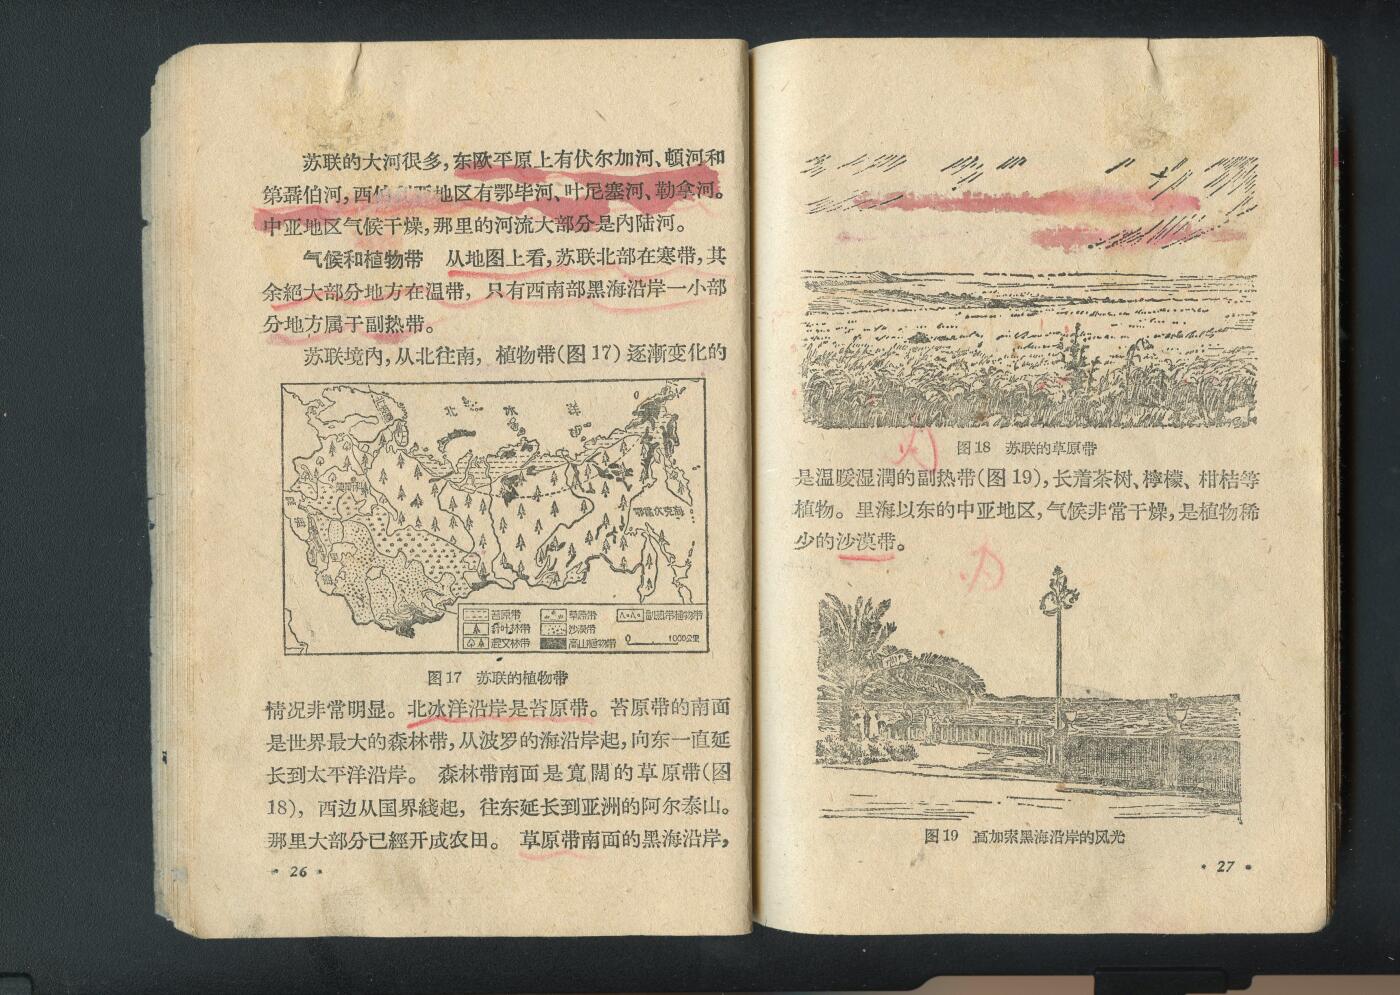 苏联的大河很多，东欧平原上有伏尔加河、頓河和
第聶伯河，西伯利亚地区有鄂毕河、叶尼塞河、勒拿河。
中亚地区气候干燥，那里的河流大部分是内陆河。
气候和植物带　从地图上看，苏联北部在寒带，其
余絕大部分地方在温带，只有西南部黑海沿岸一小部
分地方属于副热带。
苏联境内，从北往南，植物带(图 17) 逐漸变化的
北　冰　洋
鄂霍次克海
苔原带
草原带
副热带植物带
針叶林带
沙漠带
混交林带
高山植物带
0　1000公里
图 17　苏联的植物带
情况非常明显。北冰洋沿岸是苔原带。苔原带的南面
是世界最大的森林带，从波罗的海沿岸起，向东一直延
长到太平洋沿岸。森林带南面是寬闊的草原带(图
18)，西边从国界綫起，往东延长到亚洲的阿尔泰山。
那里大部分已經开成农田。草原带南面的黑海沿岸，
· 26 ·
图 18　苏联的草原带
是温暖湿潤的副热带(图 19)，长着茶树、檸檬、柑桔等
植物。里海以东的中亚地区，气候非常干燥，是植物稀
少的沙漠带。
图 19　高加索黑海沿岸的风光
· 27 ·